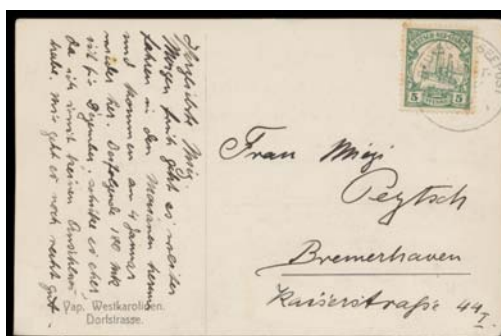 Herzliebste Miezi.
Morgen früh geht es weiter
fahren in den Marianen herum
und kommen am 4 Januar
wieder her. Beifolgende 180 Mk
ist für Dezember, schicke es eher
da ich sonst keinen Anschluss
habe. Mir geht es noch recht gut.
Yap. Westkarolinen.
Dorfstrasse.
5
5
Frau Miezi
Peytsch
Bremerhaven
Kaiserstraße 44 I.